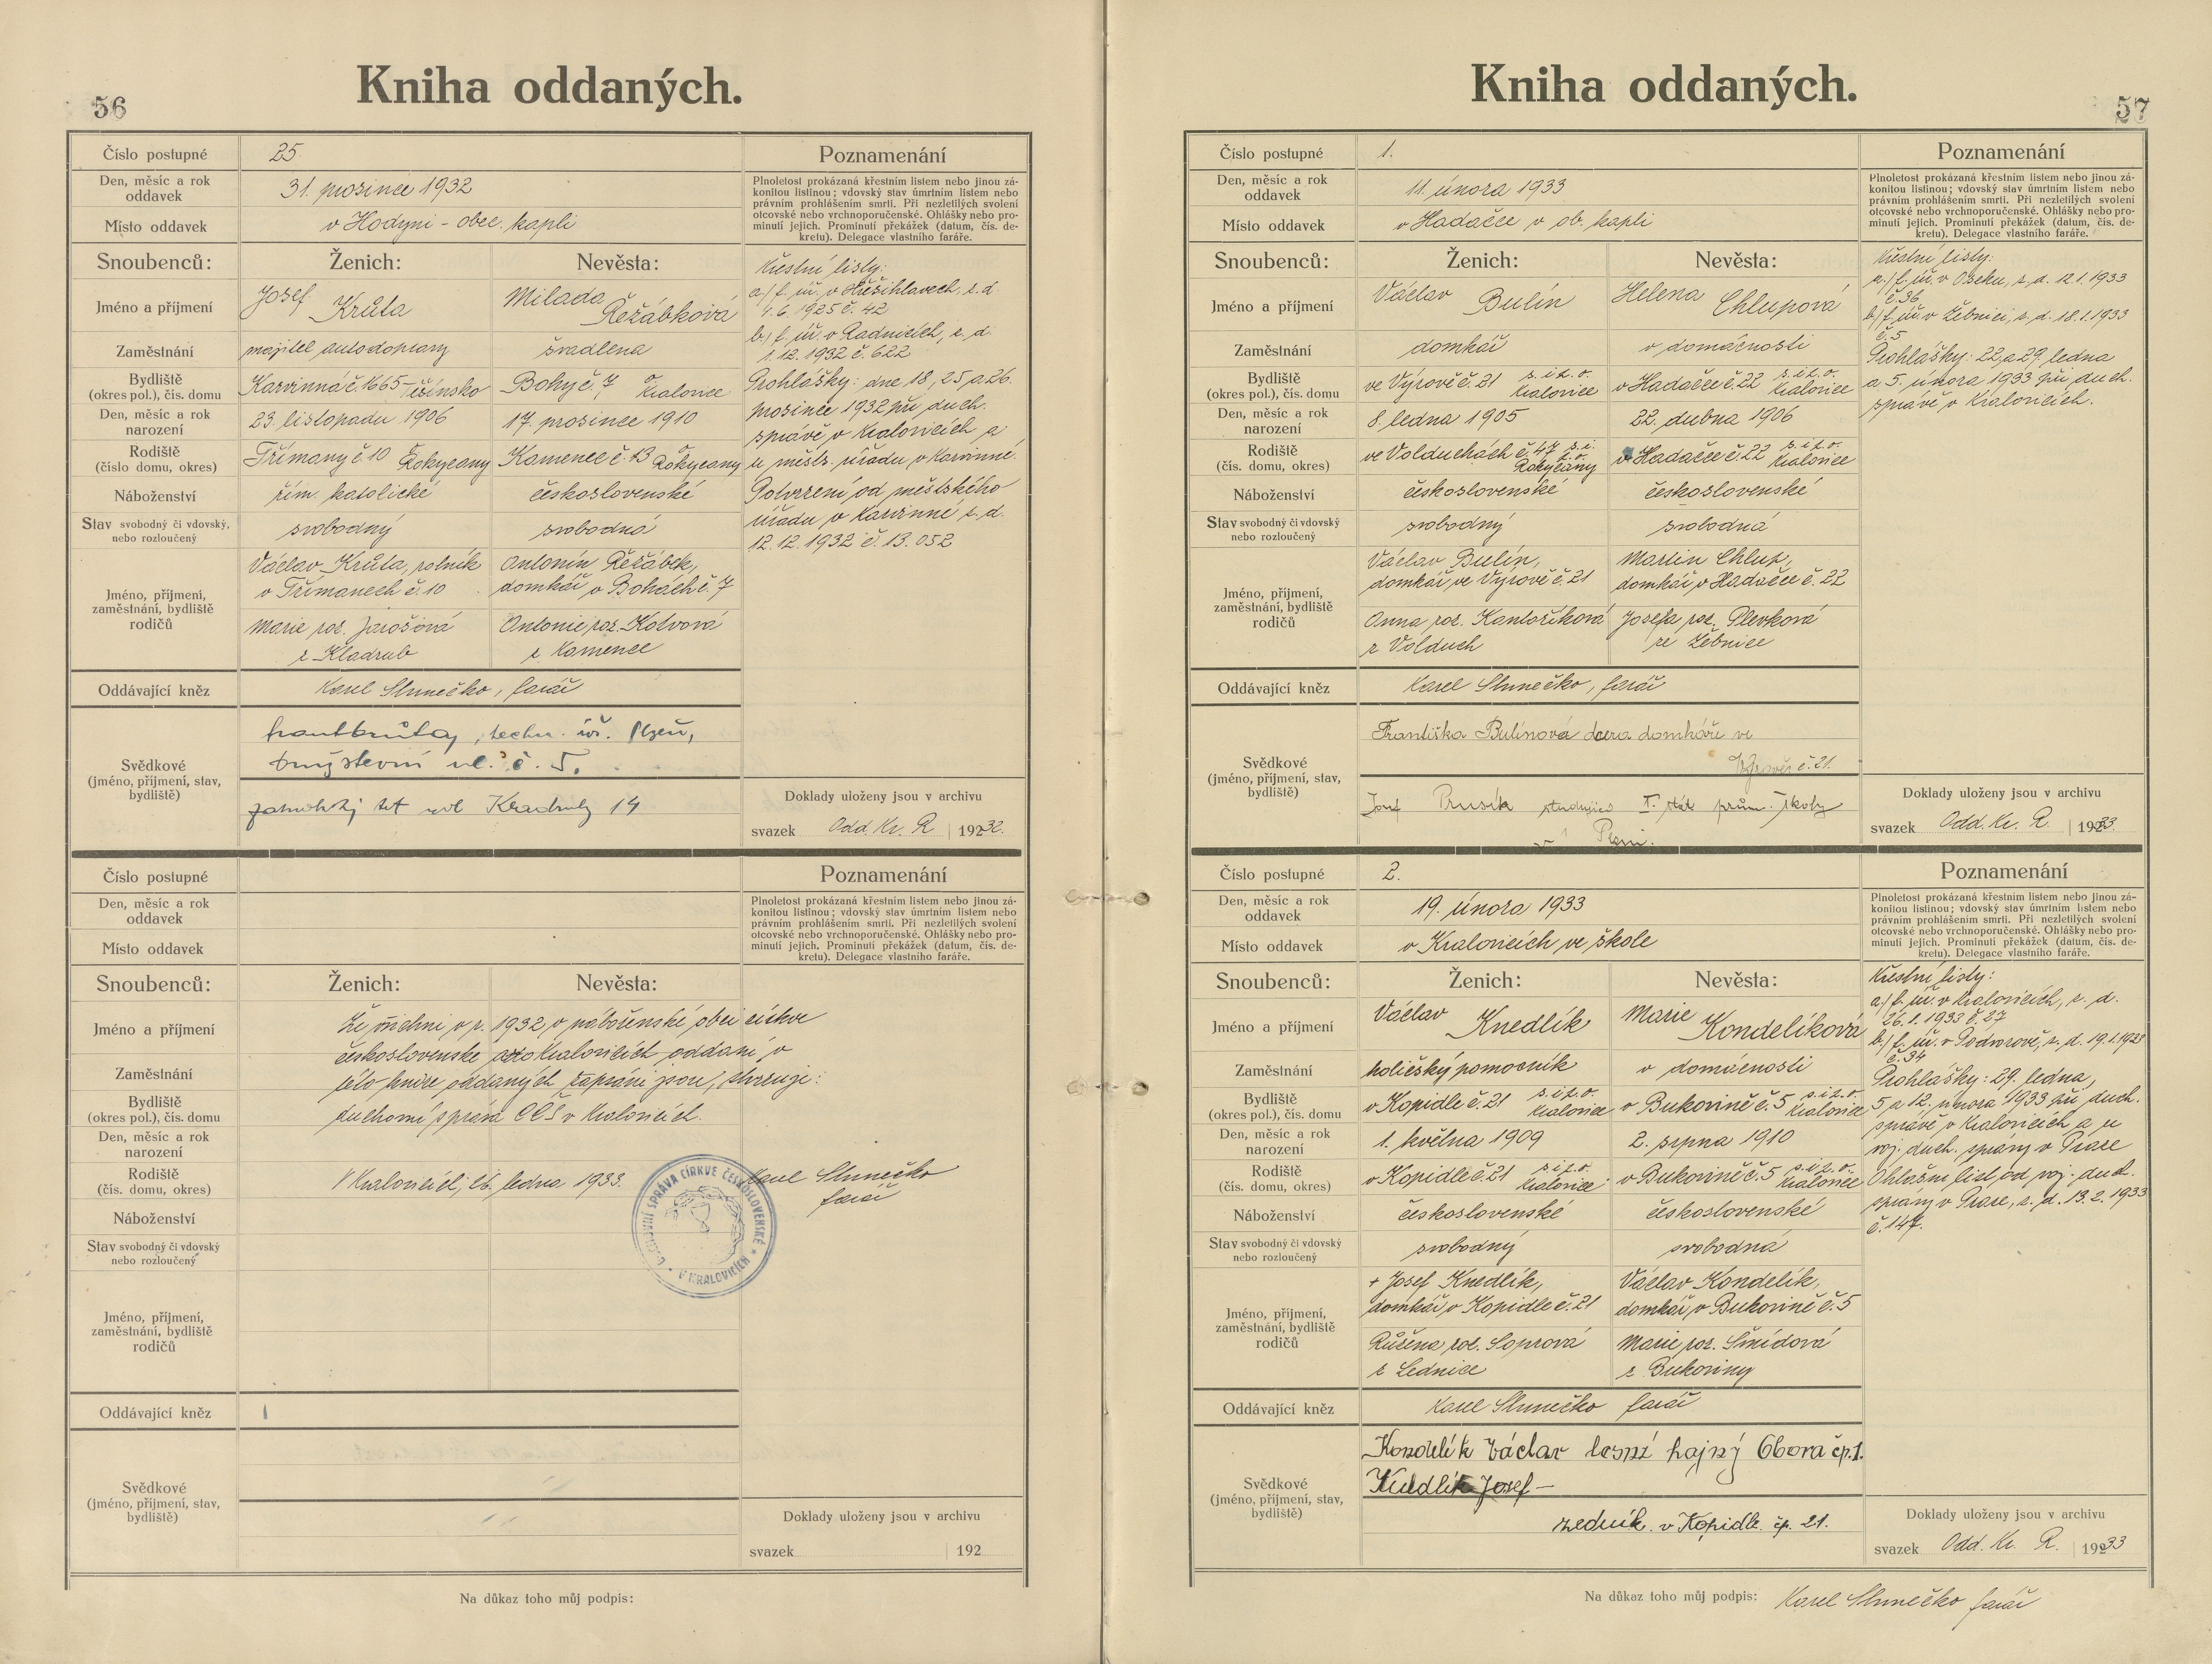 56
Kniha oddaných.
Číslo postupné
25
Poznamenání
Den, měsíc a rok
oddavek
31. prosince 1932
Plnoletost prokázaná křestním listem nebo jinou zá-
konitou listinou; vdovský stav úmrtním listem nebo
právním prohlášením smrti. Při nezletilých svolení
otcovské nebo vrchnoporučenské. Ohlášky nebo pro-
minutí jejich. Prominutí překážek (datum, čís. de-
kretu). Delegace vlastního faráře.
Místo oddavek
v Hodyni - obec. kapli
Snoubenců:
Ženich:
Nevěsta:
Jméno a příjmení
Josef Krůta
Milada Řežábková
Zaměstnání
majitel autodopravy
švadlena
Bydliště
(okres pol.), čís. domu
Karvinná č. 1665 - Těšínsko
Bohy č. 7, o Kralovice
Den, měsíc a rok
narození
23. listopadu 1906
17. prosince 1910
Rodiště
(číslo domu, okres)
Třímany č. 10 Rokycany
Kamenec č. 13 o Rokycany
Náboženství
řím. katolické
československé
Stav svobodný či vdovský,
nebo rozloučený
svobodný
svobodná
Jméno, příjmení,
zaměstnání, bydliště
rodičů
Václav Krůta, rolník
v Třímanech č. 10
Antonín Řežábek,
domkář v Bohách č. 7
Marie roz. Jarošová
z Kladrub
Antonie roz. Kotvová
z Kamence
Křestní listy:
a/ f. úř. v                , z. d.
4. 6. 1925 č. 42
b/ f. úř. v Radnicích, z. d.
1. 12. 1932 č. 622
Prohlášky: dne 18, 25, a 26.
prosince 1932 při duch.
správě v Kralovicích a
u městs. úřadu v Karvinné.
Potvrzení od městského
úřadu v Karvinné z. d.
12. 12. 1932 č. 13.052
Oddávající kněz
Karel Slunečko, farář
Svědkové
(jméno, příjmení, stav,
bydliště)
techn. úř. Plzeň,
ul. č. 5.
Kladruby 14
Doklady uloženy jsou v archivu
svazek Odd. Kr. R 1932.
Číslo postupné
Poznamenání
Den, měsíc a rok
oddavek
Plnoletost prokázaná křestním listem nebo jinou zá-
konitou listinou; vdovský stav úmrtním listem nebo
právním prohlášením smrti. Při nezletilých svolení
otcovské nebo vrchnoporučenské. Ohlášky nebo pro-
minutí jejich. Prominutí překážek (datum, čís. de-
kretu). Delegace vlastního faráře.
Místo oddavek
Snoubenců:
Ženich:
Nevěsta:
Jméno a příjmení
Zaměstnání
Bydliště
(okres pol.), čís. domu
Den, měsíc a rok
narození
Rodiště
(čís. domu, okres)
Náboženství
Stav svobodný či vdovský
nebo rozloučený
Jméno, příjmení,
zaměstnání, bydliště
rodičů
Že všichni v r. 1932 v náboženské obci církve
československé v Kralovicích oddaní v
této knize oddaných zapsáni jsou, stvrzuje:
duchovní správa CČS v Kralovicích.
V Kralovicích, 26. ledna 1933.
Karel Slunečko
farář
DUCHOVNÍ SPRÁVA CÍRKVE ČESKOSLOVENSKÉ * V KRALOVICÍCH *
Oddávající kněz
Svědkové
(jméno, příjmení, stav,
bydliště)
Doklady uloženy jsou v archivu
svazek 192
Na důkaz toho můj podpis:
57
Kniha oddaných.
Číslo postupné
1.
Poznamenání
Den, měsíc a rok
oddavek
11. února 1933
Plnoletost prokázaná křestním listem nebo jinou zá-
konitou listinou; vdovský stav úmrtním listem nebo
právním prohlášením smrti. Při nezletilých svolení
otcovské nebo vrchnoporučenské. Ohlášky nebo pro-
minutí jejich. Prominutí překážek (datum, čís. de-
kretu). Delegace vlastního faráře.
Místo oddavek
v Hadačce v ob. kapli
Snoubenců:
Ženich:
Nevěsta:
Jméno a příjmení
Václav Bulín
Helena Chlupová
Zaměstnání
domkář
v domácnosti
Bydliště
(okres pol.), čís. domu
ve Výrově č. 21 s. i. t. o. Kralovice
v Hadačce č. 22 s. i. t. o. Kralovice
Den, měsíc a rok
narození
8. ledna 1905
22. dubna 1906
Rodiště
(čís. domu, okres)
ve Volduchách č. 47 s. i. t. o. Rokycany
v Hadačce č. 22 s. i. t. o. Kralovice
Náboženství
československé
československé
Stav svobodný či vdovský
nebo rozloučený
svobodný
svobodná
Jméno, příjmení,
zaměstnání, bydliště
rodičů
Václav Bulín,
domkář ve Výrově č. 21
Martin Chlup,
domkář v Hadačce č. 22
Anna roz. Kantoříková
z Volduch
Josefa roz. Plevková
ze Žebnice
Křestní listy:
a/ f. úř. v Oseku, z. d. 12. 1. 1933
č. 36
b/ f. úř. v Žebnici, z. d. 18. 1. 1933
č. 5
Prohlášky: 22, a 29. ledna
a 5. února 1933 při duch.
správě v Kralovicích.
Oddávající kněz
Karel Slunečko, farář
Svědkové
(jméno, příjmení, stav,
bydliště)
Františka Bulínová dcera domkáře ve
Výrově č. 21.
Josef Prusík studující I. stát. prům. školy
v Plzni.
Doklady uloženy jsou v archivu
svazek Odd. Kr. R. 1933.
Číslo postupné
2.
Poznamenání
Den, měsíc a rok
oddavek
19. února 1933
Plnoletost prokázaná křestním listem nebo jinou zá-
konitou listinou; vdovský stav úmrtním listem nebo
právním prohlášením smrti. Při nezletilých svolení
otcovské nebo vrchnoporučenské. Ohlášky nebo pro-
minutí jejich. Prominutí překážek (datum, čís. de-
kretu). Delegace vlastního faráře.
Místo oddavek
v Kralovicích ve škole
Snoubenců:
Ženich:
Nevěsta:
Jméno a příjmení
Václav Knedlík
Marie Kondelíková
Zaměstnání
holičský pomocník
v domácnosti
Bydliště
(okres pol.), čís. domu
v Kopidle č. 21 s. i. t. o. Kralovice
v Bukovině č. 5 s. i. t. o. Kralovice
Den, měsíc a rok
narození
1. května 1909
2. srpna 1910
Rodiště
(čís. domu, okres)
v Kopidle č. 21 s. i. t. o. Kralovice
v Bukovině č. 5 s. i. t. o. Kralovice
Náboženství
československé
československé
Stav svobodný či vdovský
nebo rozloučený
svobodný
svobodná
Jméno, příjmení,
zaměstnání, bydliště
rodičů
+ Josef Knedlík,
domkář v Kopidle č. 21
Václav Kondelík,
domkář v Bukovině č. 5
Růžena roz. Soprová
z Lednice
Marie roz. Šmídová
z Bukoviny
Křestní listy:
a/ f. úř. v Kralovicích, z. d.
26. 1. 1933 č. 27
b/ f. úř. v Podvorově, z. d. 19. 1. 1928
č. 34
Prohlášky: 29. ledna,
5 a 12. února 1933 při duch.
správě v Kralovicích a u
voj. duch. správy v Praze
Ohlašní list od voj. duch.
správy v Praze, z. d. 13. 2. 1933
č. 147.
Oddávající kněz
Karel Slunečko farář
Svědkové
(jméno, příjmení, stav,
bydliště)
Kondelík Václav lesní hajný Obora čp. 1.
Knedlík Josef —
zedník v Kopidle čp. 21.
Doklady uloženy jsou v archivu
svazek Odd. Kr. R. 1933
Na důkaz toho můj podpis: Karel Slunečko farář